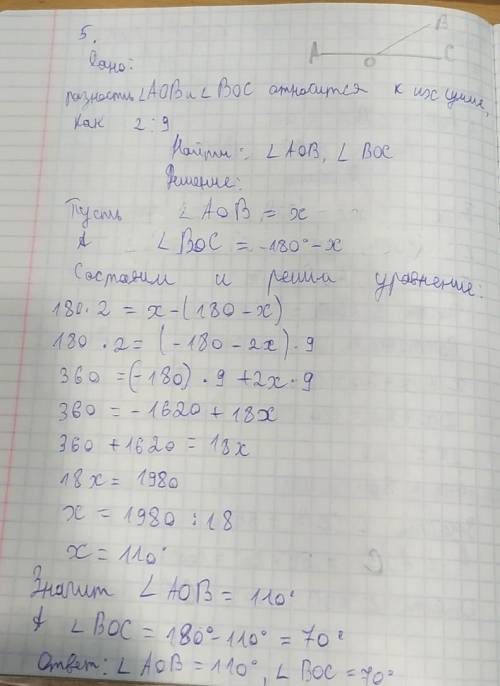 5.
B
A O C
Дано:
разность ∠AOB и ∠BOC относится к их сумме,
как 2:9
Найти: ∠AOB, ∠BOC
Решение:
Пусть ∠AOB = x
А ∠BOC = -180° - x
Составим и решим уравнение:
180·2 = x-(180-x)
180·2= (-180-2x)·9
360 =(-180)·9 +2x·9
360 = -1620 + 18x
360 + 1620 = 18x
18x = 1980
x = 1980 : 18
x = 110°
Значит ∠AOB = 110°
А ∠BOC = 180° - 110° = 70°
Ответ: ∠AOB = 110°, ∠BOC = 70°